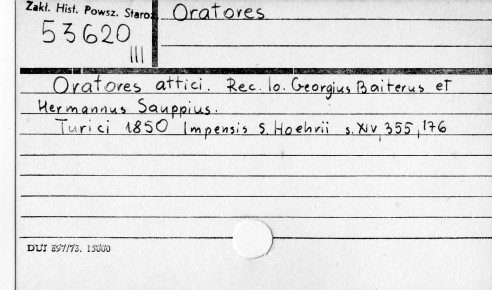 Zakł. Hist. Powsz. Staroż.
Oratores
53620
III
Oratores attici. Rec. Io. Georgius Baiterus et
Hermannus Sauppius.
Turici 1850 Impensis S. Hoehrii s. XIV, 355, 176
DUI 897/73. 15000